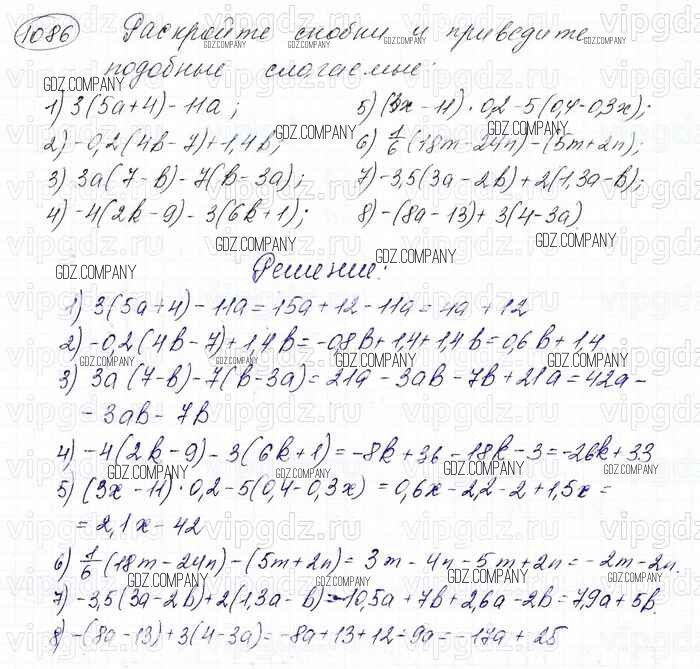 1086 Раскройте скобки и приведите
подобные слагаемые:
1) 3(5a+4)-11a; 5) (3x-11)·0,2-5(0,4-0,3x);
2) -0,2(4b-7)+1,4b; 6) 1/6(18m-24n)-(5m+2n);
3) 3a(7-b)-7(b-3a); 7) -3,5(3a-2b)+2(1,3a-b);
4) -4(2k-9)-3(6k+1); 8) -(8a-13)+3(4-3a)
Решение:
1) 3(5a+4)-11a=15a+12-11a=4a+12
2) -0,2(4b-7)+1,4b=-08b+1,4+1,4b=0,6b+1,4
3) 3a(7-b)-7(b-3a)=21a-3ab-7b+21a=42a-
-3ab-7b
4) -4(2k-9)-3(6k+1)=-8k+36-18k-3=-26k+33
5) (3x-11)·0,2-5(0,4-0,3x)=0,6x-2,2-2+1,5x=
=2,1x-42
6) 1/6(18m-24n)-(5m+2n)=3m-4n-5m+2n=-2m-2n.
7) -3,5(3a-2b)+2(1,3a-b)=-10,5a+7b+2,6a-2b=7,9a+5b.
8) -(8a-13)+3(4-3a)=-8a+13+12=9a=-17a+25
GDZ.COMPANY
vipgdz.ru